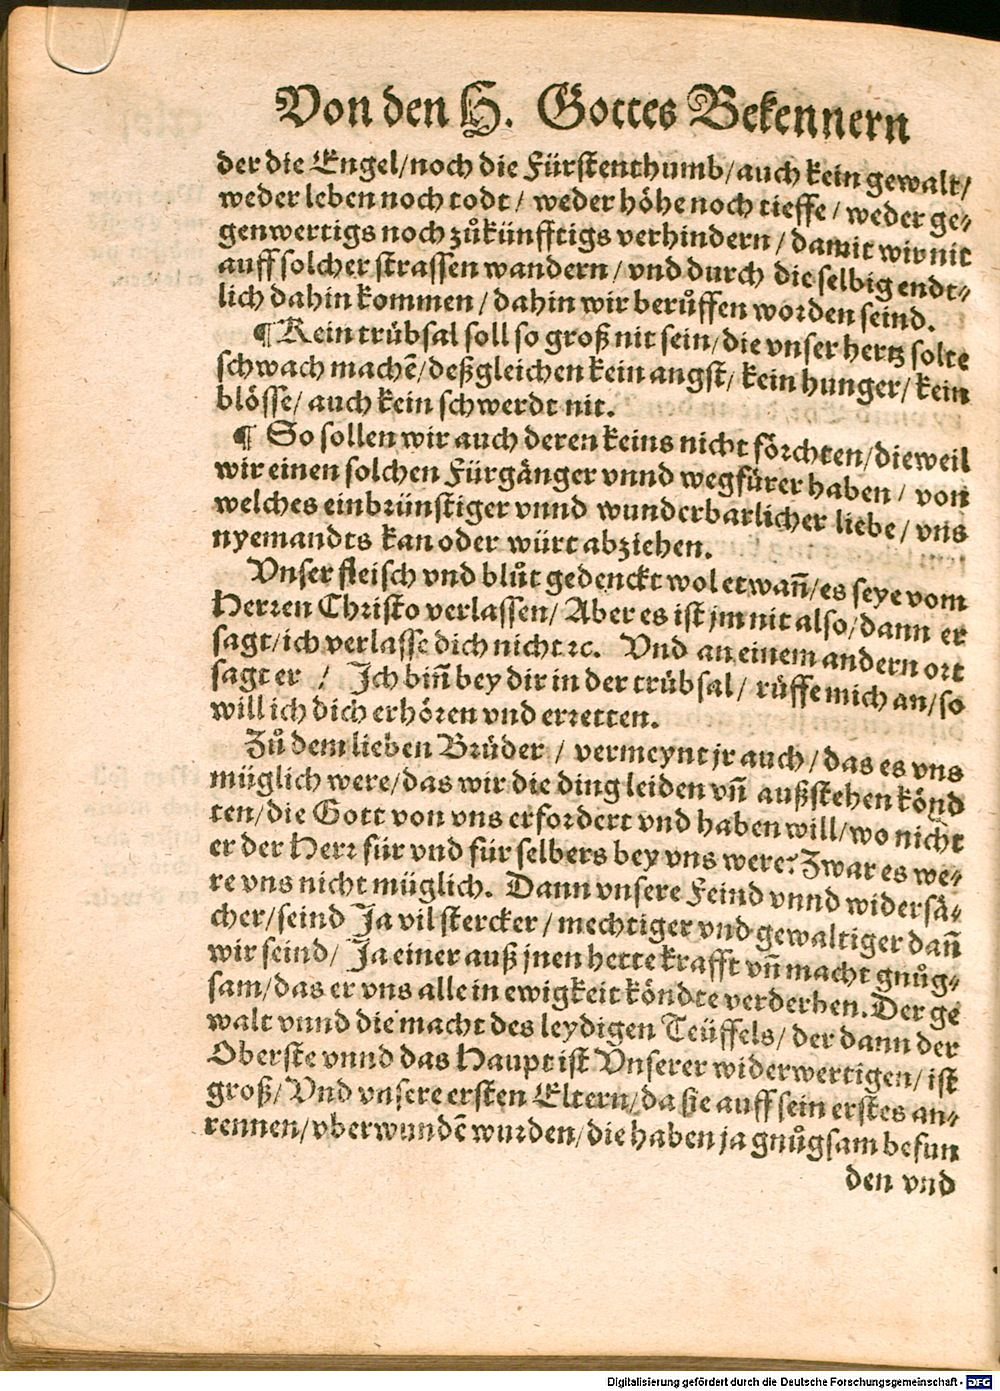 Von den H. Gottes Bekennern
der die Engel/noch die Fürstenthumb/auch kein gewalt/
weder leben noch todt/ weder höhe noch tieffe/ weder ge-
genwertigs noch zůkünfftigs verhindern/ damit wir nit
auff solcher strassen wandern/ vnd durch die selbig endt-
lich dahin kommen/ dahin wir berůffen worden seind.
¶ Kein trübsal soll so groß nit sein/ die vnser hertz solte
schwach machẽ/ deßgleichen kein angst/ kein hunger/ kein
blösse/ auch kein schwerdt nit.
¶ So sollen wir auch deren keins nicht förchten/dieweil
wir einen solchen Fürgänger vnnd wegfürer haben/ von
welches einbrünstiger vnnd wunderbarlicher liebe/ vns
nyemandts kan oder würt abziehen.
Vnser fleisch vnd blůt gedenckt wol etwañ/es seye vom
Herren Christo verlassen/ Aber es ist jm nit also/dann er
sagt/ich verlasse dich nicht ꝛc. Vnd an einem andern ort
sagt er / Ich biñ bey dir in der trübsal/ rüffe mich an/so
will ich dich erhören vnd erretten.
Zů dem lieben Brüder / vermeynt jr auch/ das es vns
müglich were/das wir die ding leiden vñ außstehen könd
ten/die Gott von vns erfordert vnd haben will/wo nicht
er der Herr für vnd für selbers bey vns were? Zwar es we-
re vns nicht müglich. Dann vnsere Feind vnnd widersä-
cher/seind Ja vil stercker/ mechtiger vnd gewaltiger dañ
wir seind/ Ja einer auß jnen hette krafft vñ macht gnůg-
sam/das er vns alle in ewigkeit köndte verderben. Der ge
walt vnnd die macht des leydigen Teüffels/ der dann der
Oberste vnnd das Haupt ist Vnserer widerwertigen/ ist
groß/ Vnd vnsere ersten Eltern/da sie auff sein erstes an-
rennen/vberwundẽ wurden/die haben ja gnůgsam befun
den vnd
Digitalisierung gefördert durch die Deutsche Forschungsgemeinschaft - DFG